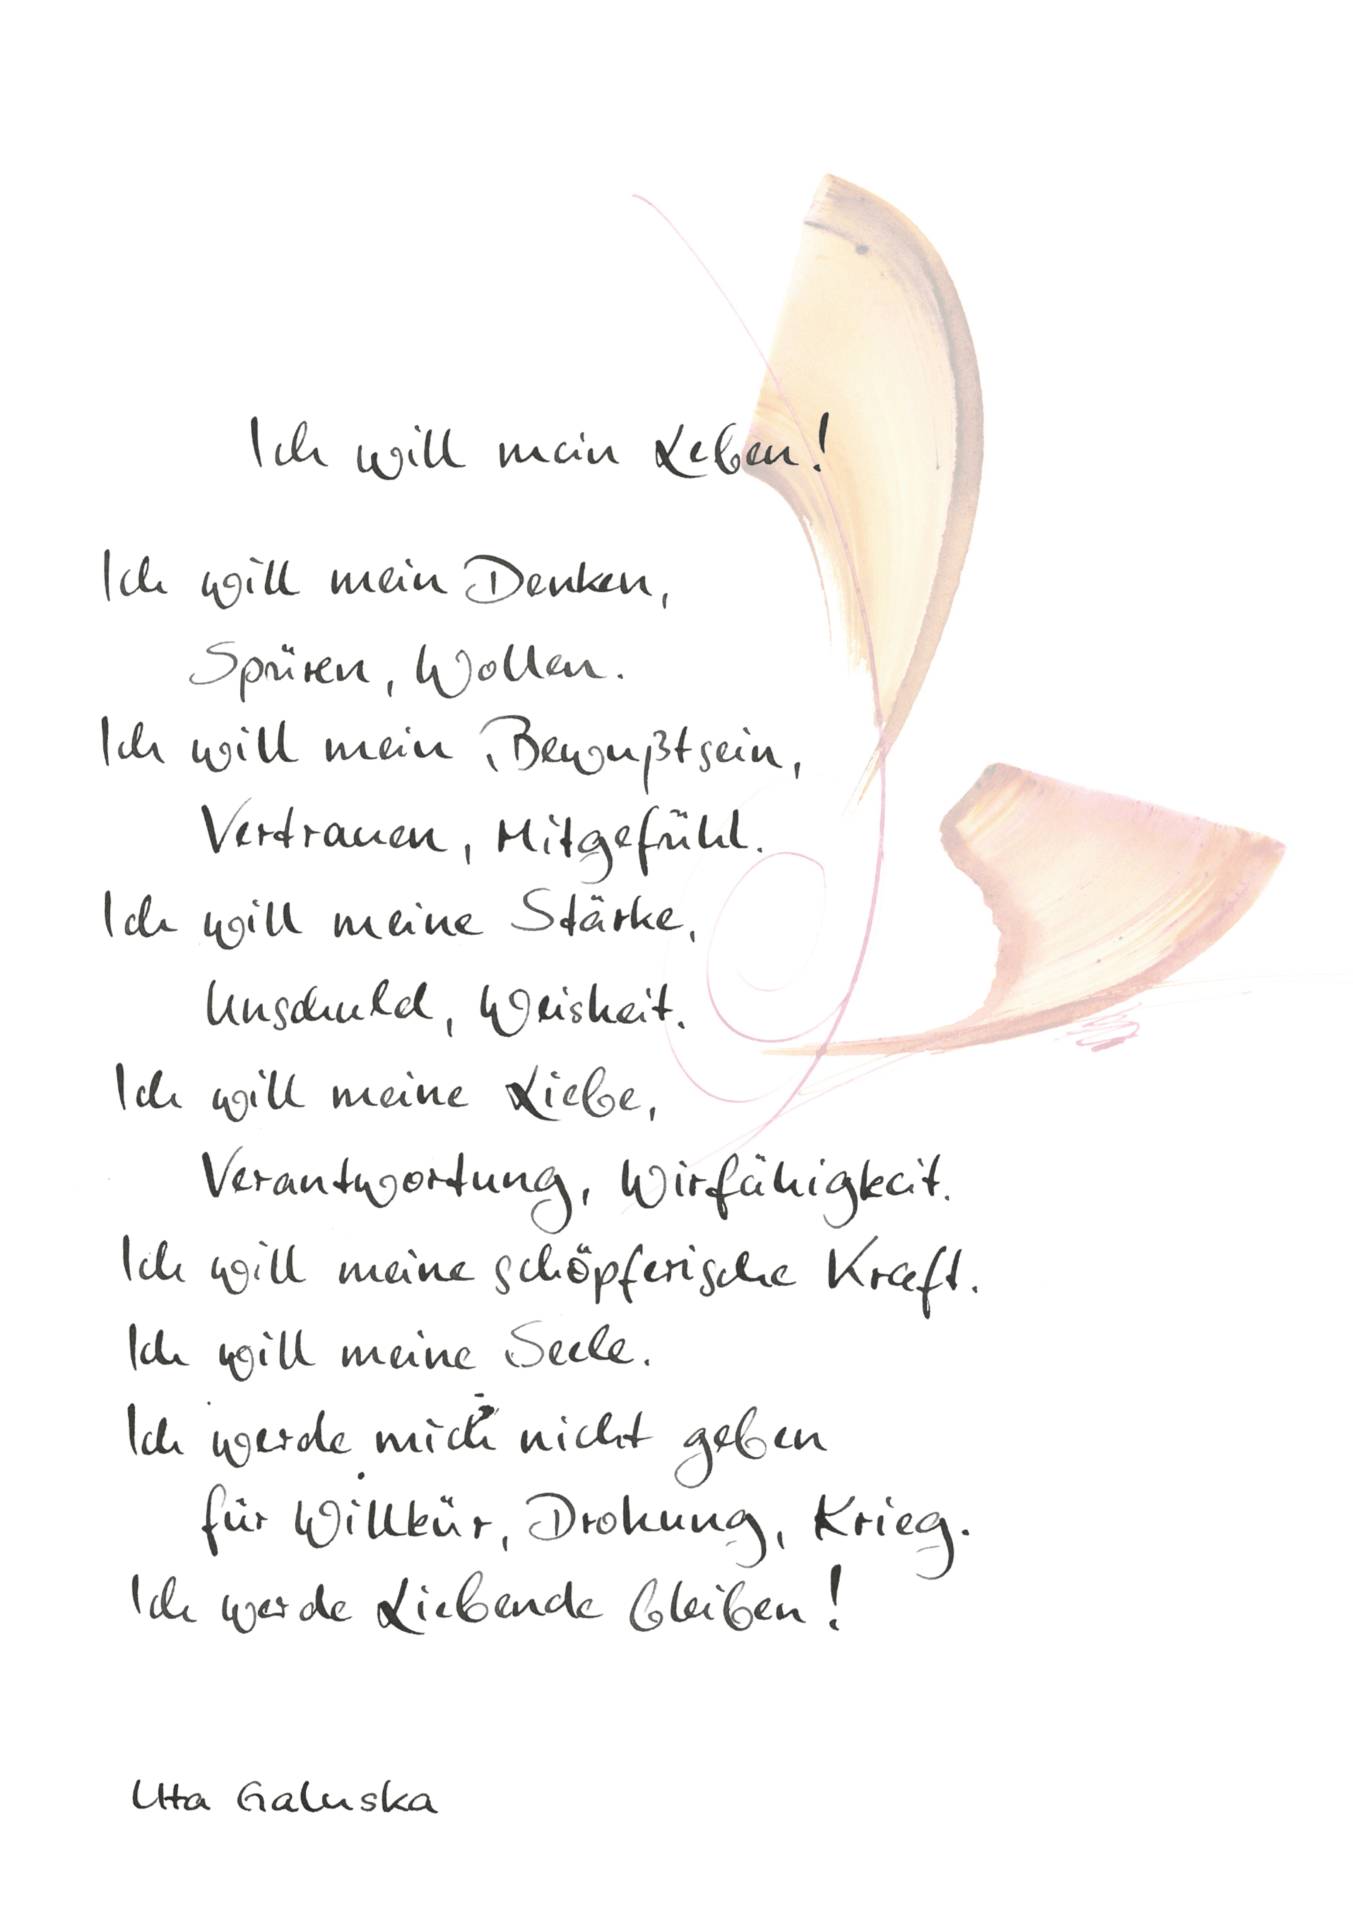 Ich will mein Leben!
Ich will mein Denken,
Spüren, Wollen.
Ich will mein Bewußtsein,
Vertrauen, Mitgefühl.
Ich will meine Stärke,
Unschuld, Weisheit.
Ich will meine Liebe,
Verantwortung, Wirfähigkeit.
Ich will meine schöpferische Kraft.
Ich will meine Seele.
Ich werde mich nicht geben
für Willkür, Drohung, Krieg.
Ich werde Liebende bleiben!
Uta Galuska